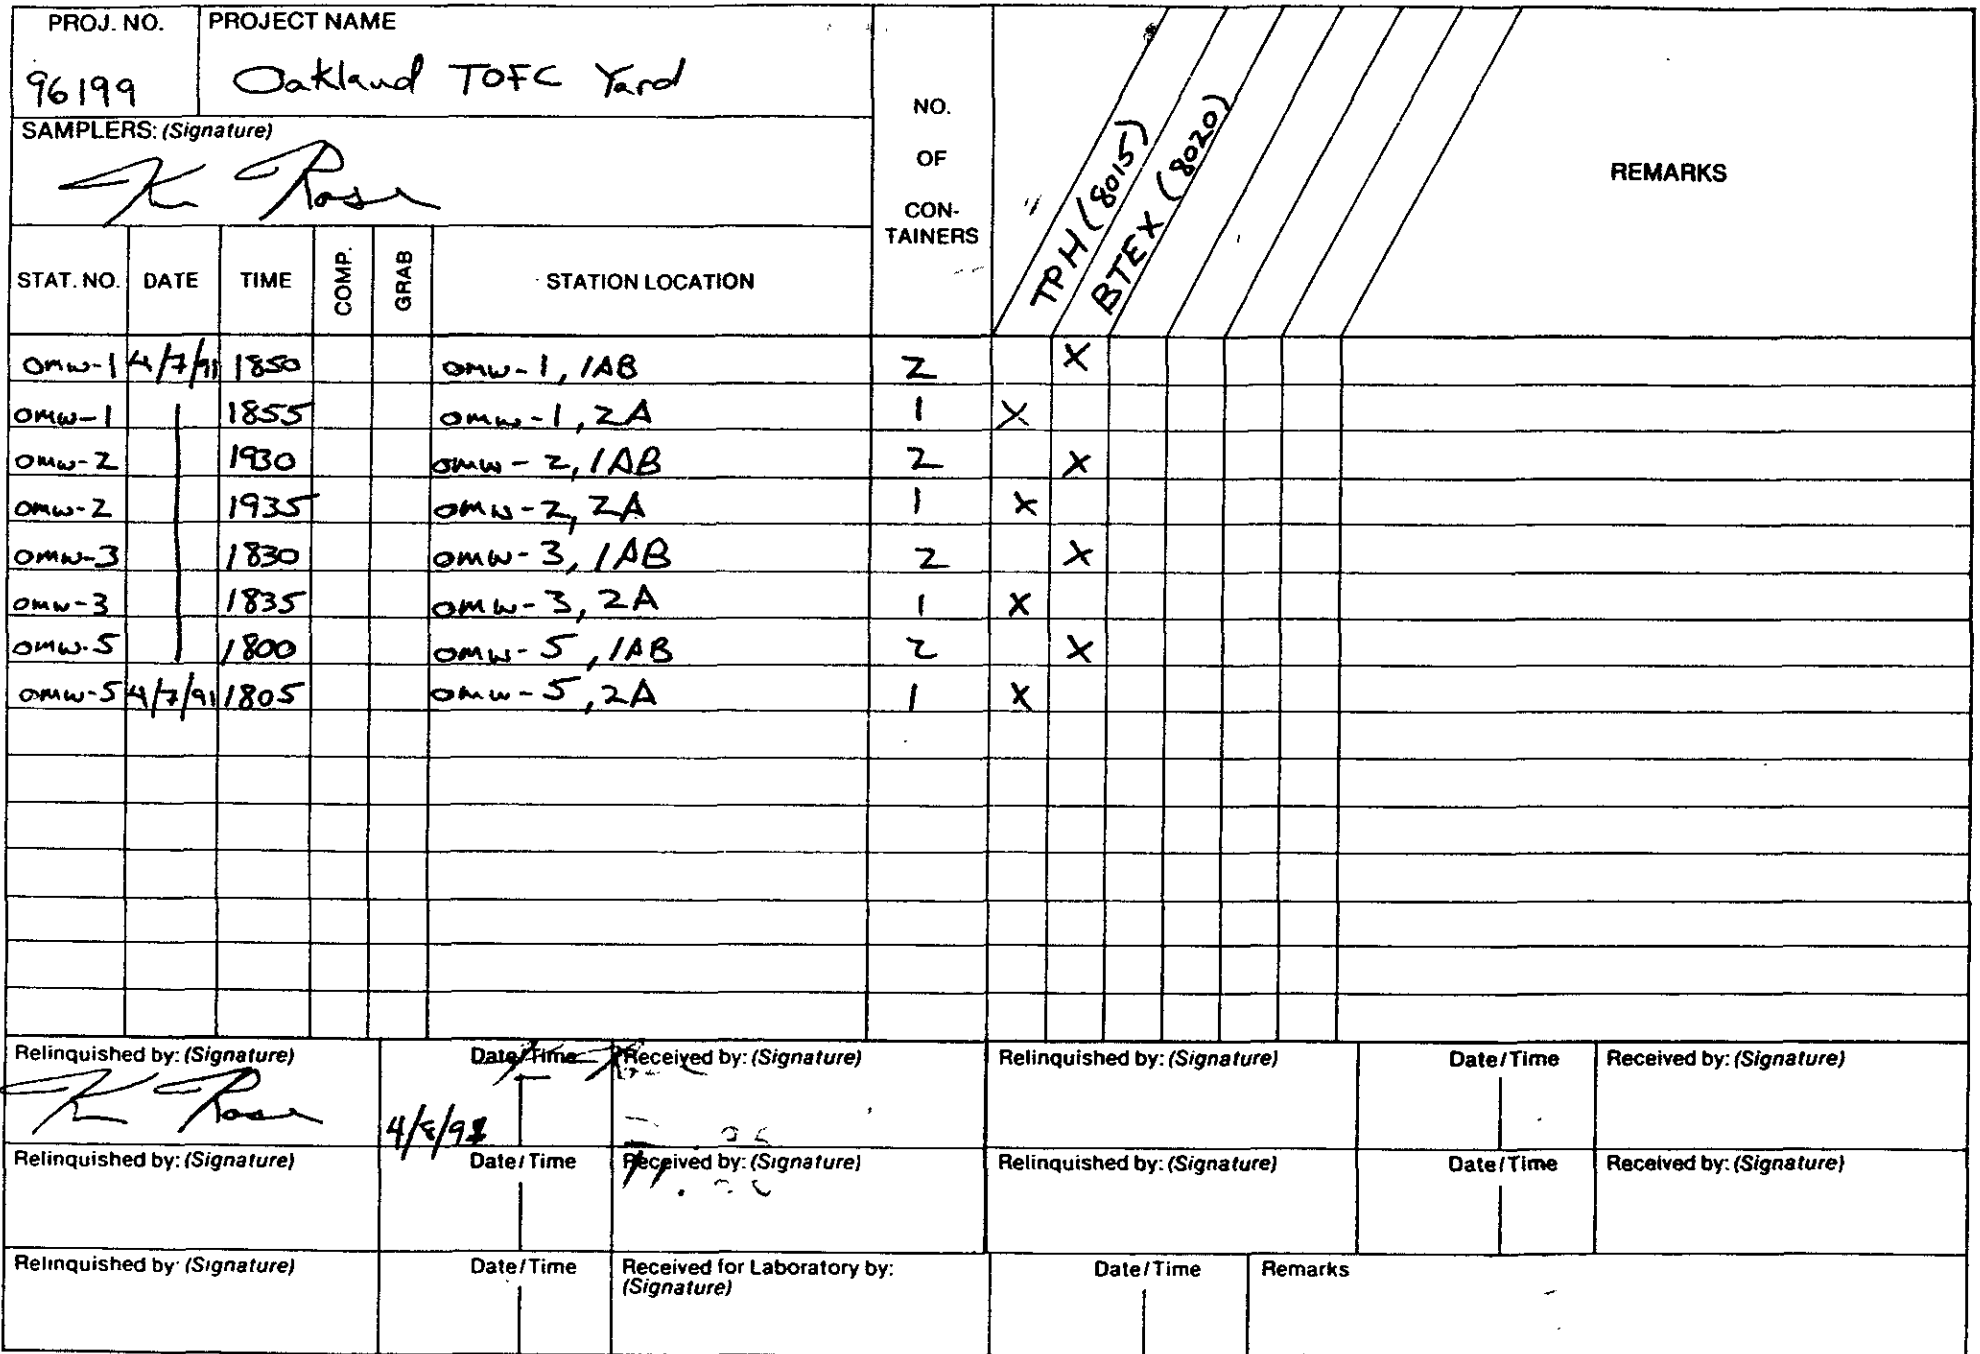 PROJ. NO. PROJECT NAME
96199 Oakland TOFC Yard
SAMPLERS: (Signature)
K Rose
NO.
OF
CON-
TAINERS
TPH (8015)
BTEX (8020)
REMARKS
STAT. NO. DATE TIME COMP. GRAB STATION LOCATION
OMW-1 4/7/91 1850 OMW-1, 1AB 2 X
OMW-1 1855 OMW-1, 2A 1 X
OMW-2 1930 OMW-2, 1AB 2 X
OMW-2 1935 OMW-2, 2A 1 X
OMW-3 1830 OMW-3, 1AB 2 X
OMW-3 1835 OMW-3, 2A 1 X
OMW-5 1800 OMW-5, 1AB 2 X
OMW-5 4/7/91 1805 OMW-5, 2A 1 X
Relinquished by: (Signature) Date/Time Received by: (Signature) Relinquished by: (Signature) Date/Time Received by: (Signature)
K Rose 4/8/91
Relinquished by: (Signature) Date/Time Received by: (Signature) Relinquished by: (Signature) Date/Time Received by: (Signature)
Relinquished by: (Signature) Date/Time Received for Laboratory by: Date/Time Remarks
(Signature)